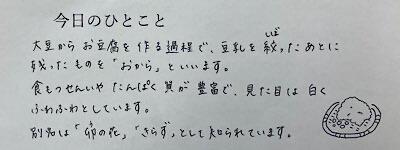 今日のひとこと
大豆から お豆腐を 作る過程で、豆乳を 絞ったあとに
残ったものを「おから」といいます。
食もつせんいや たんぱく質が 豊富で、見た目は 白く
ふわふわとしています。
別名は「卯の花」「きらず」として知られています。